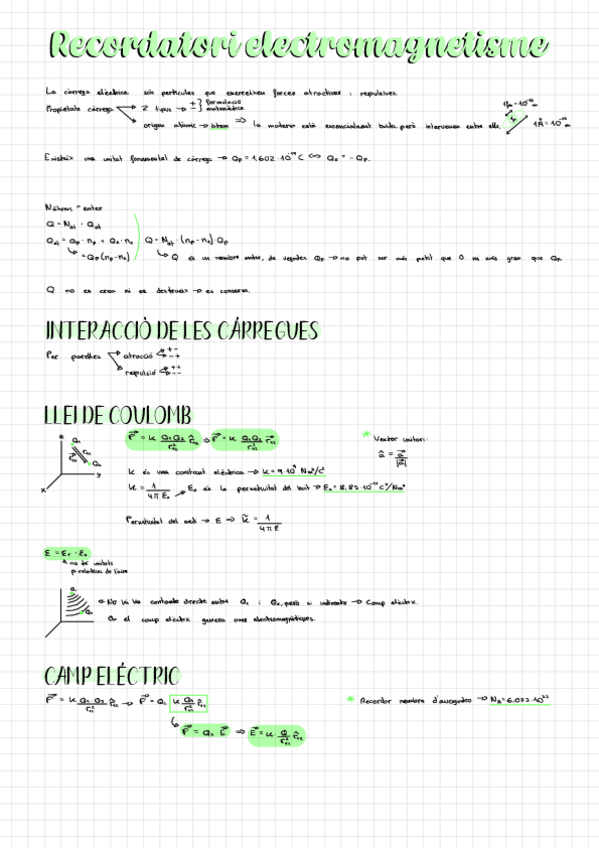 Recordatori electromagnetisme
La càrrega elèctrica són partícules que exerceixen forces atractives i repulsives.
Propietats càrrega → 2 tipus → + - } formulació matemàtica
origen atòmic → àtom ⇒ la matèria està essencialment buida, però intervenen entre elles
1Å = 10⁻¹⁰ m
Existeix una unitat fonamental de càrrega → Qp = 1,602 · 10⁻¹⁹ C ⇔ Qe = - Qp.
Q = Nat · Qat
Qat = Qp · np + Qe · ne
= Qp (np - ne)
Q = Nat · (np - ne) · Qp
Q és un nombre enter, de vegades Qp → no pot ser més petit que 0 ni més gran que Qp.
Q no es crea ni es destrueix → es conserva.
INTERACCIÒ DE LES CÁRREGUES
Per parelles
atracció + - - +
repulsió + + - -
LLEI DE COULOMB
F = K Q₁Q₂ / r₁₂² r̂₁₂ ⇒ F = K Q₁Q₂ / r₁₂³ r₁₂
* Vector unitari:
â = a / |a|
K és una constant elèctrica → K = 9·10⁹ Nm²/C²
K = 1 / 4πε₀ → ε₀ és la permitivitat del buit → ε₀ = 8,85·10⁻¹² C²/Nm²
Permitivitat del medi → ε ⇒ K̃ = 1 / 4πε
ε = εr · ε₀
no té unitats
No hi ha contacte directe entre Q₁ i Q₂, però si indirecte → Camp elèctric.
En el camp elèctric genera ones electromagnètiques.
CAMP ELÉCTRIC
F = K Q₁·Q₂ / r₁₂² r̂₁₂ → F = Q₂ K Q₁ / r₁₂² r̂₁₂
* Recordar nombre d'avogadro → NA = 6.022·10²³
F = Q₂ E ⇒ E = K · Q₁ / r₁₂² r̂₁₂